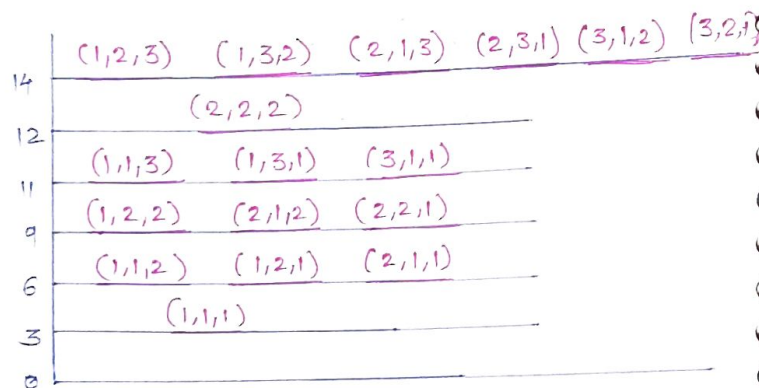 (1,2,3) (1,3,2) (2,1,3) (2,3,1) (3,1,2) (3,2,1)
14
(2,2,2)
12
(1,1,3) (1,3,1) (3,1,1)
11
(1,2,2) (2,1,2) (2,2,1)
9
(1,1,2) (1,2,1) (2,1,1)
6
(1,1,1)
3
0